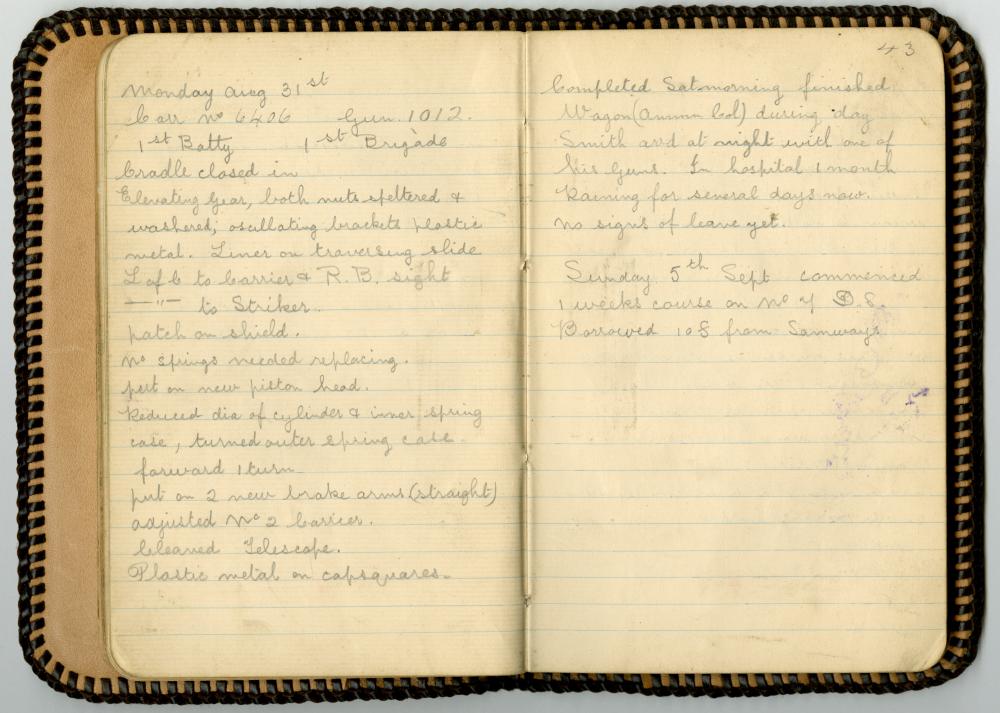 Monday Aug 31st
Carr No 6406 Gun. 1012.
1st Batty 1st Brigade
Cradle closed in
Elevating Gear, both nuts speltered &
washered; oscillating brackets plastic
metal. Liner on traversing slide
L of C to Carrier & R.B. sight
—"— to Striker.
patch on shield.
No springs needed replacing.
put on new piston head.
Reduced dia of cylinder & inner spring
case, turned outer spring case
forward 1 turn
put on 2 new brake arms (straight)
adjusted No 2 Carrier.
Cleaned Telescope.
Plastic metal on capsquares.
43
Completed Sat morning finished
Wagon (Ammn Col) during day
Smith and at night with one of
his Guns. In hospital 1 month
Raining for several days now.
No signs of leave yet.
Sunday 5th Sept commenced
1 weeks course on No 7 D.S.
Borrowed 10s from Samways